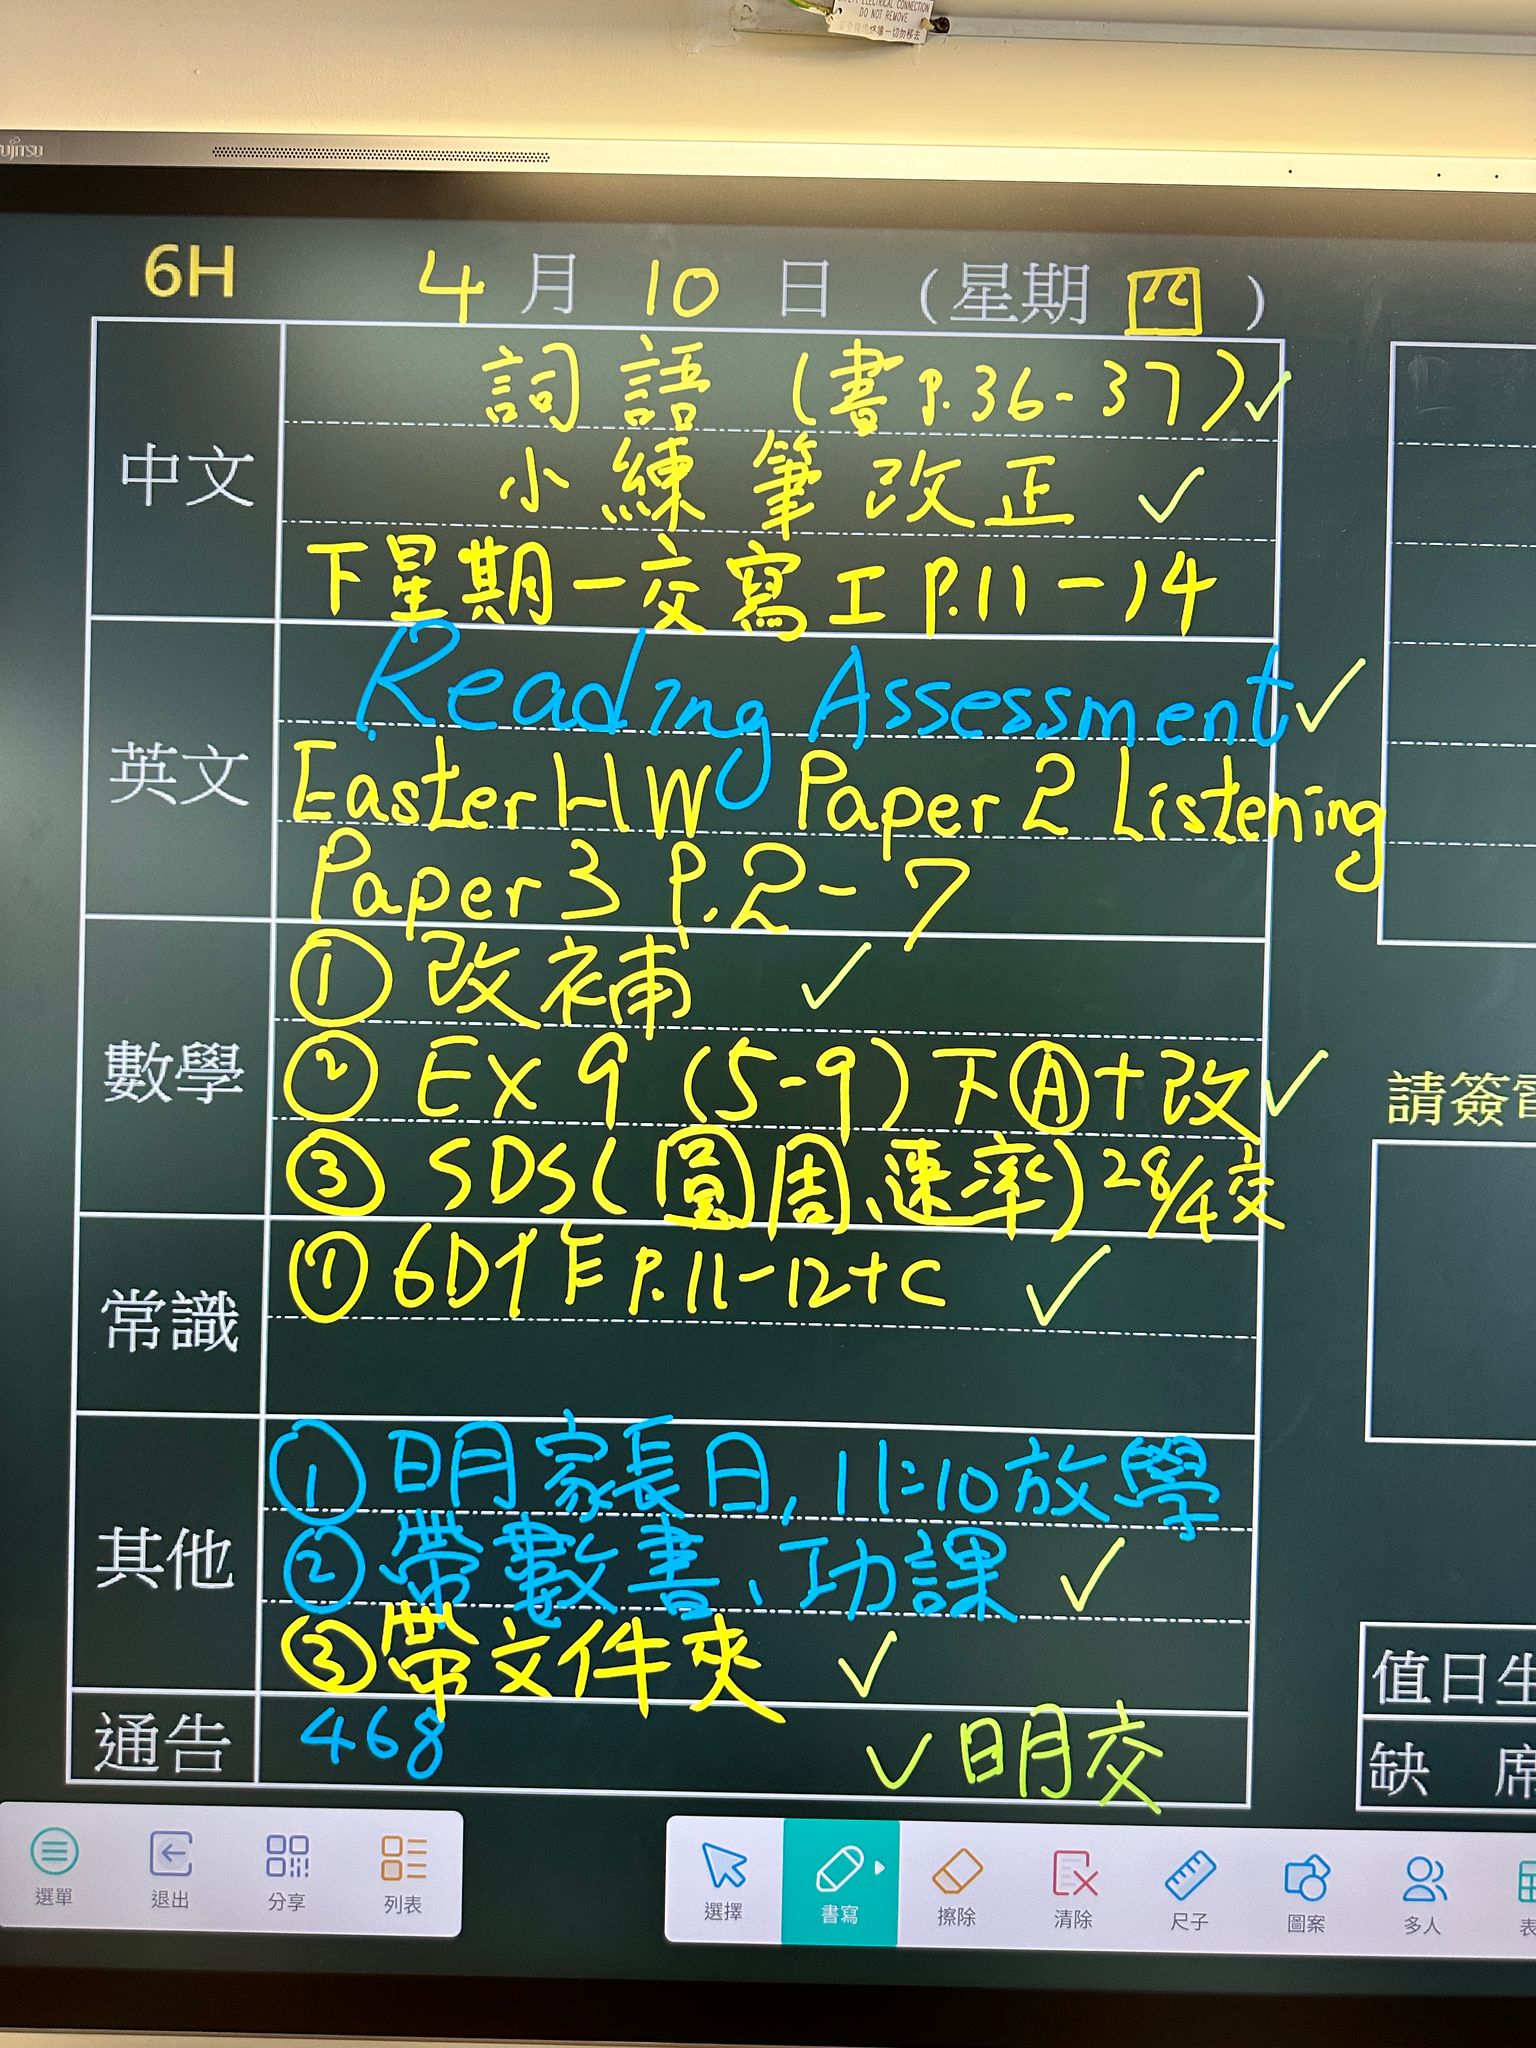 ELECTRICAL CONNECTION
DO NOT REMOVE
6H 4月10日 (星期四)
中文
詞語 (書P.36-37) ✓
小練筆改正 ✓
下星期一交寫工P.11-14
英文
Reading Assessment ✓
Easter HW Paper 2 Listening
Paper 3 P.2-7
數學
① 改補 ✓
② EX 9 (5-9) 下Ⓐ+改 ✓
③ SDS(圓周、速率) 28/4交
請簽
常識
① 6D作P.11-12+C ✓
其他
① 明家長日, 11:10放學
② 帶數書、功課 ✓
③ 帶文件夾 ✓
通告
468 ✓ 明交
值日生
缺席
選單 退出 分享 列表 選擇 書寫 擦除 清除 尺子 圖案 多人